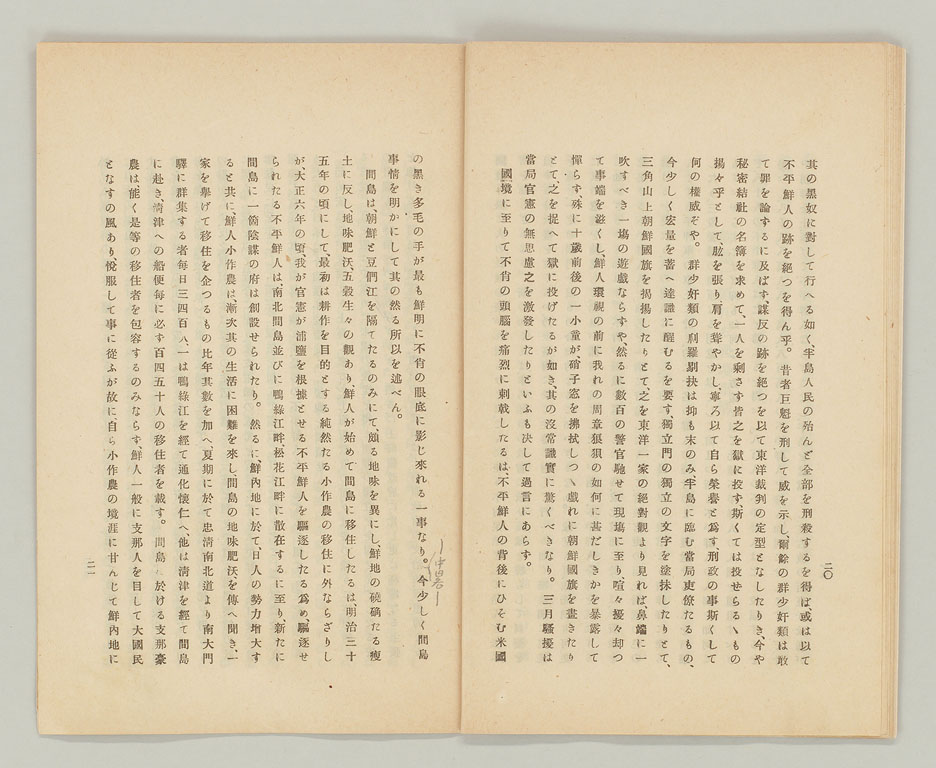 二〇
其の黑奴に對して行へる如く、半島人民の殆んど全部を刑殺するを得ば或は以て
不平鮮人の跡を絶つを得ん乎。昔者巨魁を刑して威を示し、爾餘の群少奸類は敢
て罪を論ずるに及ばず、謀反の跡を絶つを以て東洋裁判の定型となしたりき、今や
秘密結社の名簿を求めて、一人を剩さず皆之を獄に投ず斯くては投せらるゝもの
揚々乎として、肱を張り、肩を聳やかし、寧ろ以て自ら榮譽と爲す、刑政の事斯くして
何の權威ぞや。群少奸類の刹羅剔抉は抑も末のみ半島に臨む當局吏僚たるもの、
今少しく宏量を蓄へ、達識に醒むるを要す、獨立門の獨立の文字を塗抹したりとて、
三角山上朝鮮國旗を揭揚したりとて、之を東洋一家の絕對觀より見れば、鼻端に一
吹すべき一塲の遊戲ならずや、然るに數百の警官馳せて現塲に至り喧々擾々却つ
て事端を滋くし、鮮人環視の前に我れの周章狼狽の如何に甚だしきかを暴露して
憚らず殊に十歲前後の一小童が、硝子窓を拂拭しつゝ戲れに朝鮮國旗を畫きたり
とて之を捉へて獄に投げたるが如き、其の沒常識實に驚くべきなり。三月騷擾は
當局官憲の無思慮之を激發したりといふも決して過言にあらず。
國境に至りて不肖の頭腦を痛烈に刺戟したるは、不平鮮人の背後にひそむ米國
の黑き多毛の手が最も鮮明に不肖の眼底に影じ來れる一事なり。今少しく間島
事情を明かにして其の然る所以を述べん。
間島は朝鮮と豆們江を隔てたるのみにて、頗る地味を異にし、鮮地の磽确たる瘦
土に反し、地味肥沃、五穀生々の觀あり、鮮人が始めて間島に移住したるは、明治三十
五年の頃にして、最初は耕作を目的とする純然たる小作農の移住に外ならざりし
が、大正六年の頃、我が官憲が浦鹽を根據とせる不平鮮人を驅逐したる爲め、驅逐せ
られたる不平鮮人は、南北間島並びに鴨綠江畔、松花江畔に散在するに至り、新たに
間島に一箇陰謀の府は創設せられたり。然るに、鮮內地に於て、日人の勢力增大す
ると共に鮮人小作農は漸次其の生活に困難を來し、間島の地味肥沃を傳へ聞き、一
家を舉げて移住を企つるもの比年其數を加へ、夏期に於て忠淸南北道より南大門
驛に群集する者每日三四百人、一は鴨綠江を經て通化懷仁へ、他は淸津を經て間島
に赴き、淸津への船便每に必ず百四五十人の移住者を載す。間島に於ける支那豪
農は能く是等の移住者を包容するのみならず、鮮人一般に支那人を目して大國民
となすの風あり、悅服して事に從ふが故に、自ら小作農の境涯に甘んじて鮮內地に
二一